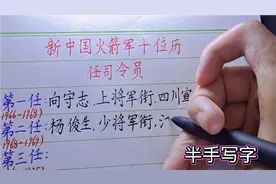 新中国火箭军十位历
任司令员
第一任:向守志.上将军衔.四川宣
(1966-1968)
第二任:杨俊生.少将军衔.
(1968-1969)
第三任:
半手写字